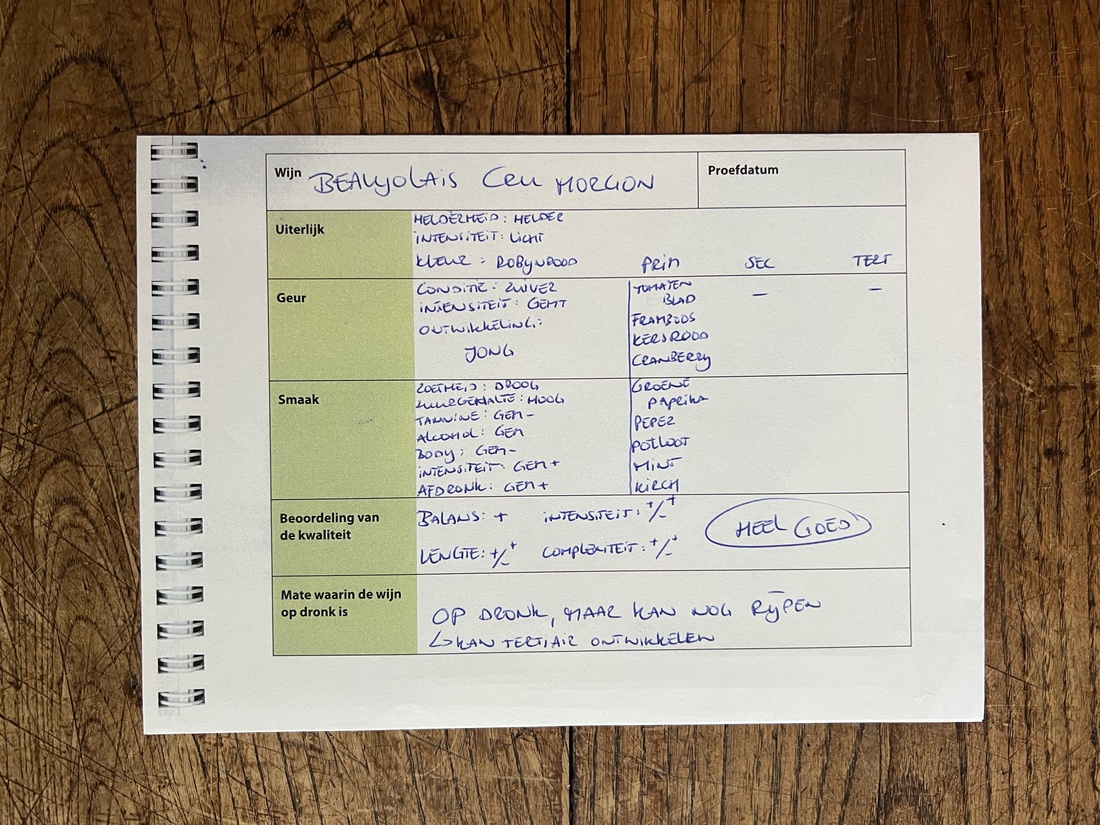 Wijn BEAUJOLAIS CRU MORGON
Proefdatum
Uiterlijk
HELDERHEID: HELDER
INTENSITEIT: LICHT
KLEUR: ROBIJNROOD
PRIM SEC TERT
Geur
CONDITIE: ZUIVER
INTENSITEIT: GEMT
ONTWIKKELING:
JONG
TOMATEN — —
BLAD
FRAMBOOS
KERSROOD
CRANBERRY
Smaak
ZOETHEID: DROOG
ZUURGEHALTE: HOOG
TANNINE: GEM-
ALCOHOL: GEM
BODY: GEM-
INTENSITEIT: GEM+
AFDRONK: GEM+
GROENE
PAPRIKA
PEPER
POTLOOT
MINT
KIRCH
Beoordeling van
de kwaliteit
BALANS: + INTENSITEIT: +/-+
LENGTE: +/-+ COMPLEXITEIT: +/-+
HEEL GOED
Mate waarin de wijn
op dronk is
OP DRONK, MAAR KAN NOG RIJPEN
↳ KAN TERTIAIR ONTWIKKELEN